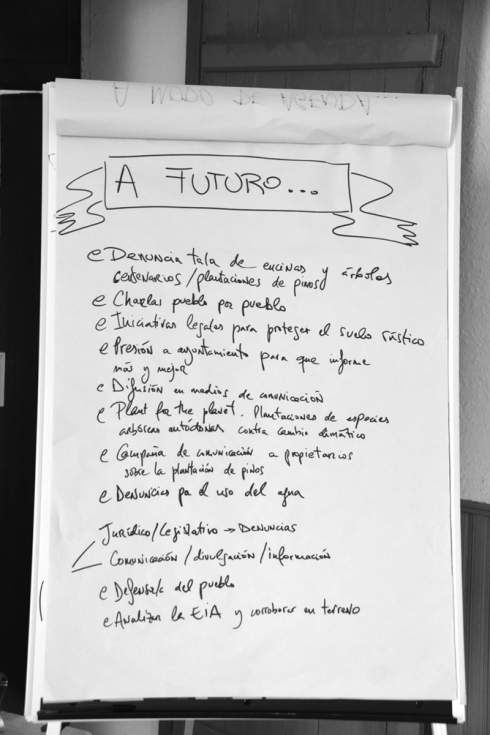 A MODO DE AGENDA...
A FUTURO...
Denuncia tala de encinas y árboles
centenarios / plantaciones de pinos
Charlas pueblo por pueblo
Iniciativas legales para proteger el suelo rústico
Presión a ayuntamiento para que informe
más y mejor
Difusión en medios de comunicación
Plant for the planet. Plantaciones de especies
arbóreas autóctonas contra cambio climático
Campaña de comunicación a propietarios
sobre la plantación de pinos
Denuncias por el uso del agua
Jurídico/Legislativo → Denuncias
Comunicación / divulgación / información
del pueblo
Analizar la EIA y corroborar en terreno